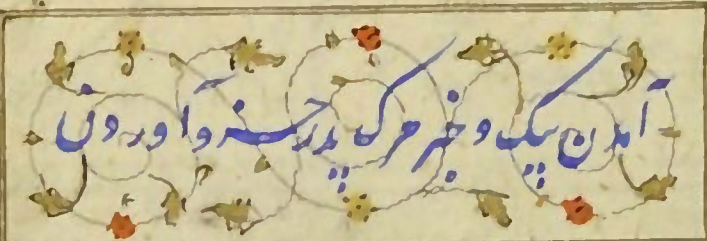 آمدن پیک و خبر مرک پدر خسرو آوردن